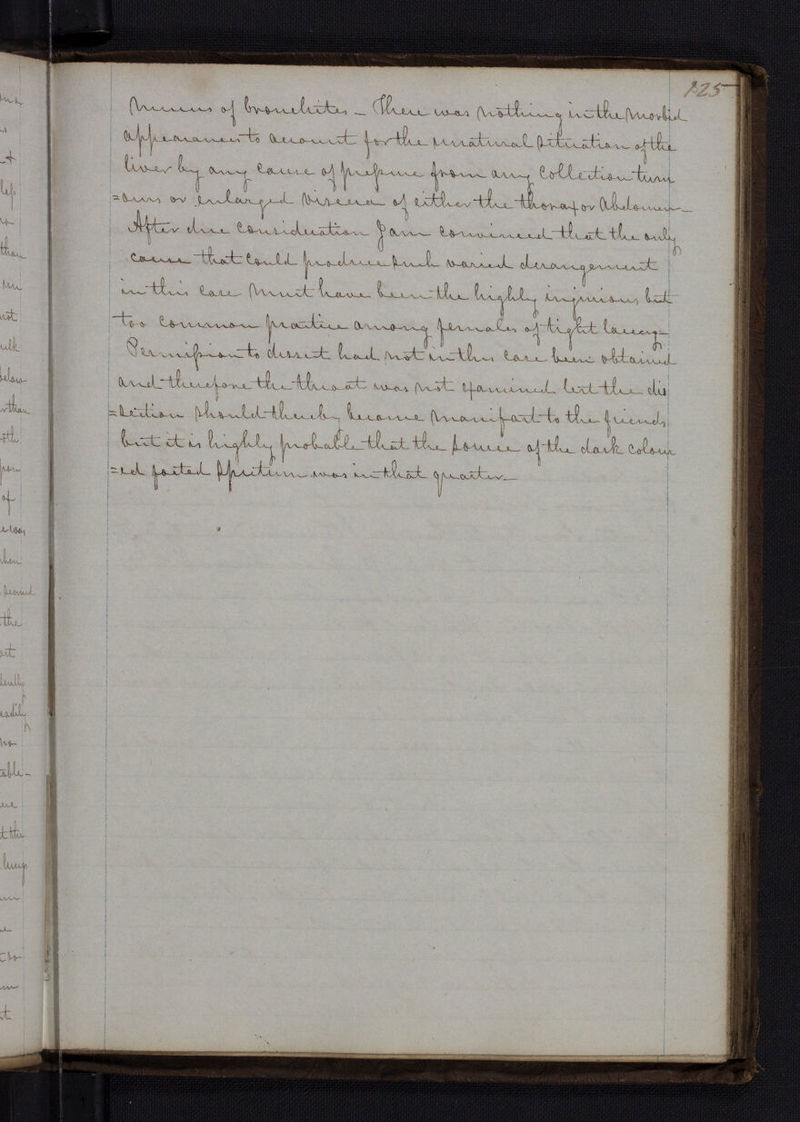 125
of bronchites - There was nothing in the morbid
appearances to account for the unnatural situation of the
liver by any cause of prefsure from any Collection tum
=ours or enlarged viscera of either the thorax or Abdomen -
After due Consideration I am convinced that the only
cause that Could produce such varied derangement
in this Case must have been the highly injurious but
too Common practice among females of tight laceing -
Permifsion to difsect had not in this Case been obtained
and therefore the throat was not examined lest the dis
=section should thereby become manifest to the friends
but it is highly probable that the source of the dark colour
=ed foeted Sputum was in that quarter -